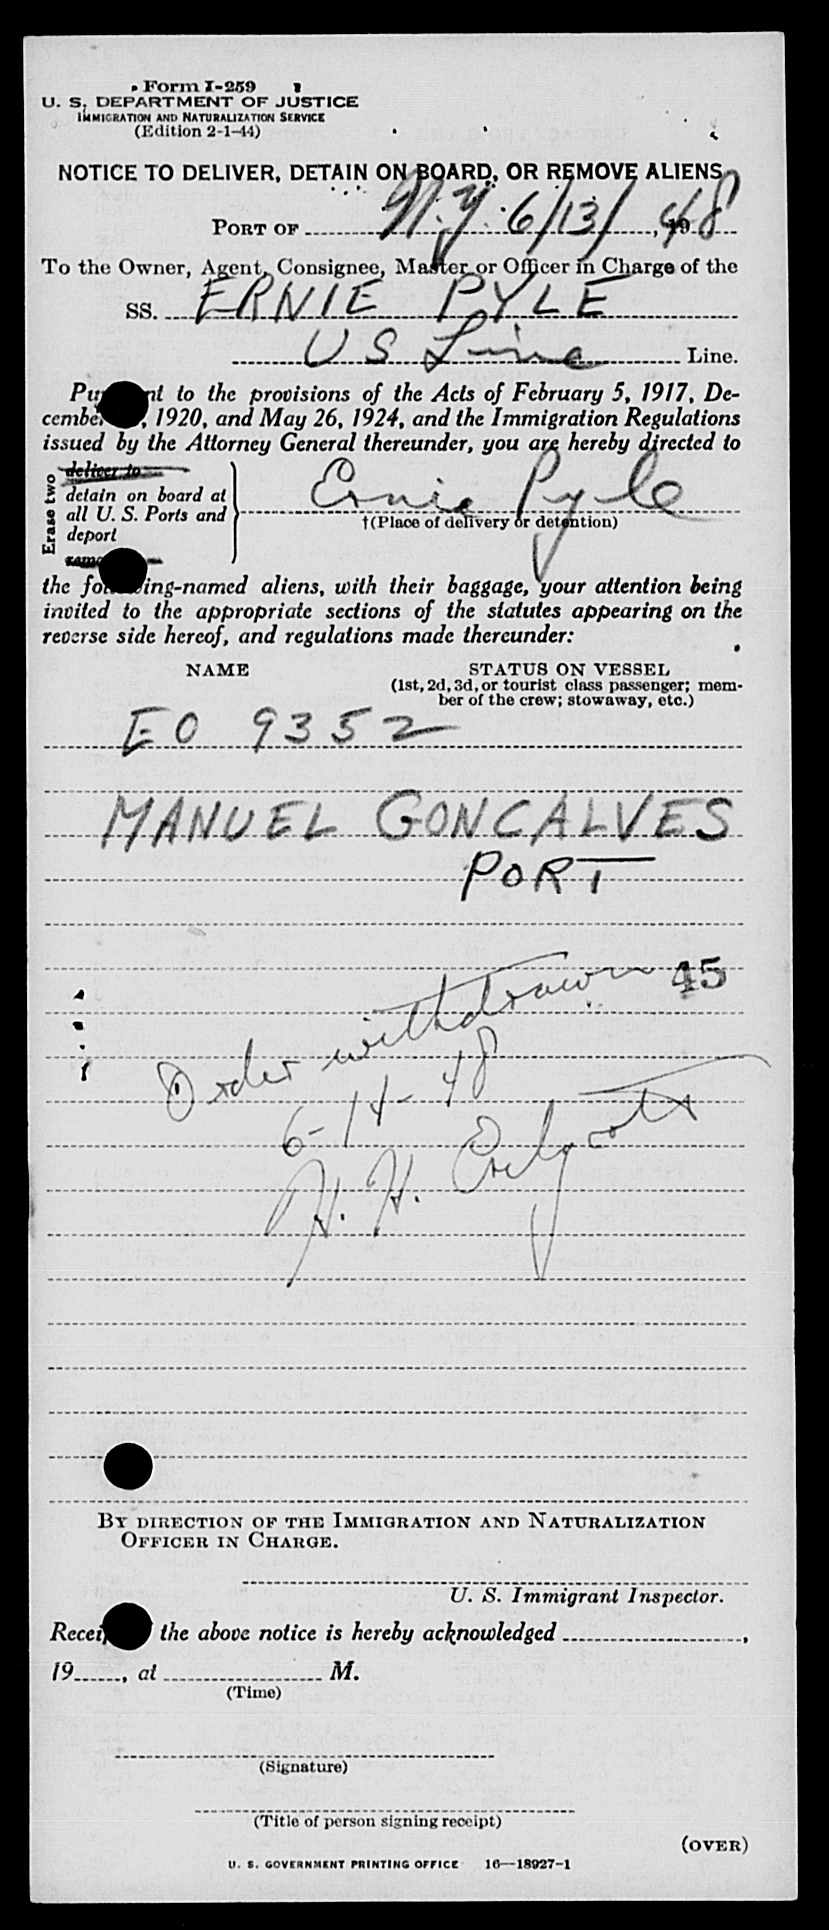 Form I-259
U. S. DEPARTMENT OF JUSTICE
IMMIGRATION AND NATURALIZATION SERVICE
(Edition 2-1-44)
NOTICE TO DELIVER, DETAIN ON BOARD, OR REMOVE ALIENS
PORT OF N.Y. 6/13/, 1948
To the Owner, Agent, Consignee, Master or Officer in Charge of the
SS. ERNIE PYLE
US Line Line.
to the provisions of the Acts of February 5, 1917, De-
1920, and May 26, 1924, and the Immigration Regulations
issued by the Attorney General thereunder, you are hereby directed to
Erase two
deliver to
detain on board at
all U. S. Ports and
deport
Ernie Pyle
†(Place of delivery or detention)
the following-named aliens, with their baggage, your attention being
invited to the appropriate sections of the statutes appearing on the
reverse side hereof, and regulations made thereunder:
NAME STATUS ON VESSEL
(1st, 2d, 3d, or tourist class passenger; mem-
ber of the crew; stowaway, etc.)
EO 9352
MANUEL GONCALVES
PORT
45
Order withdrawn
6-14-48
H. H.
BY DIRECTION OF THE IMMIGRATION AND NATURALIZATION
OFFICER IN CHARGE.
U. S. Immigrant Inspector.
the above notice is hereby acknowledged ,
19 , at M.
(Time)
(Signature)
(Title of person signing receipt)
(OVER)
U. S. GOVERNMENT PRINTING OFFICE 16—18927-1